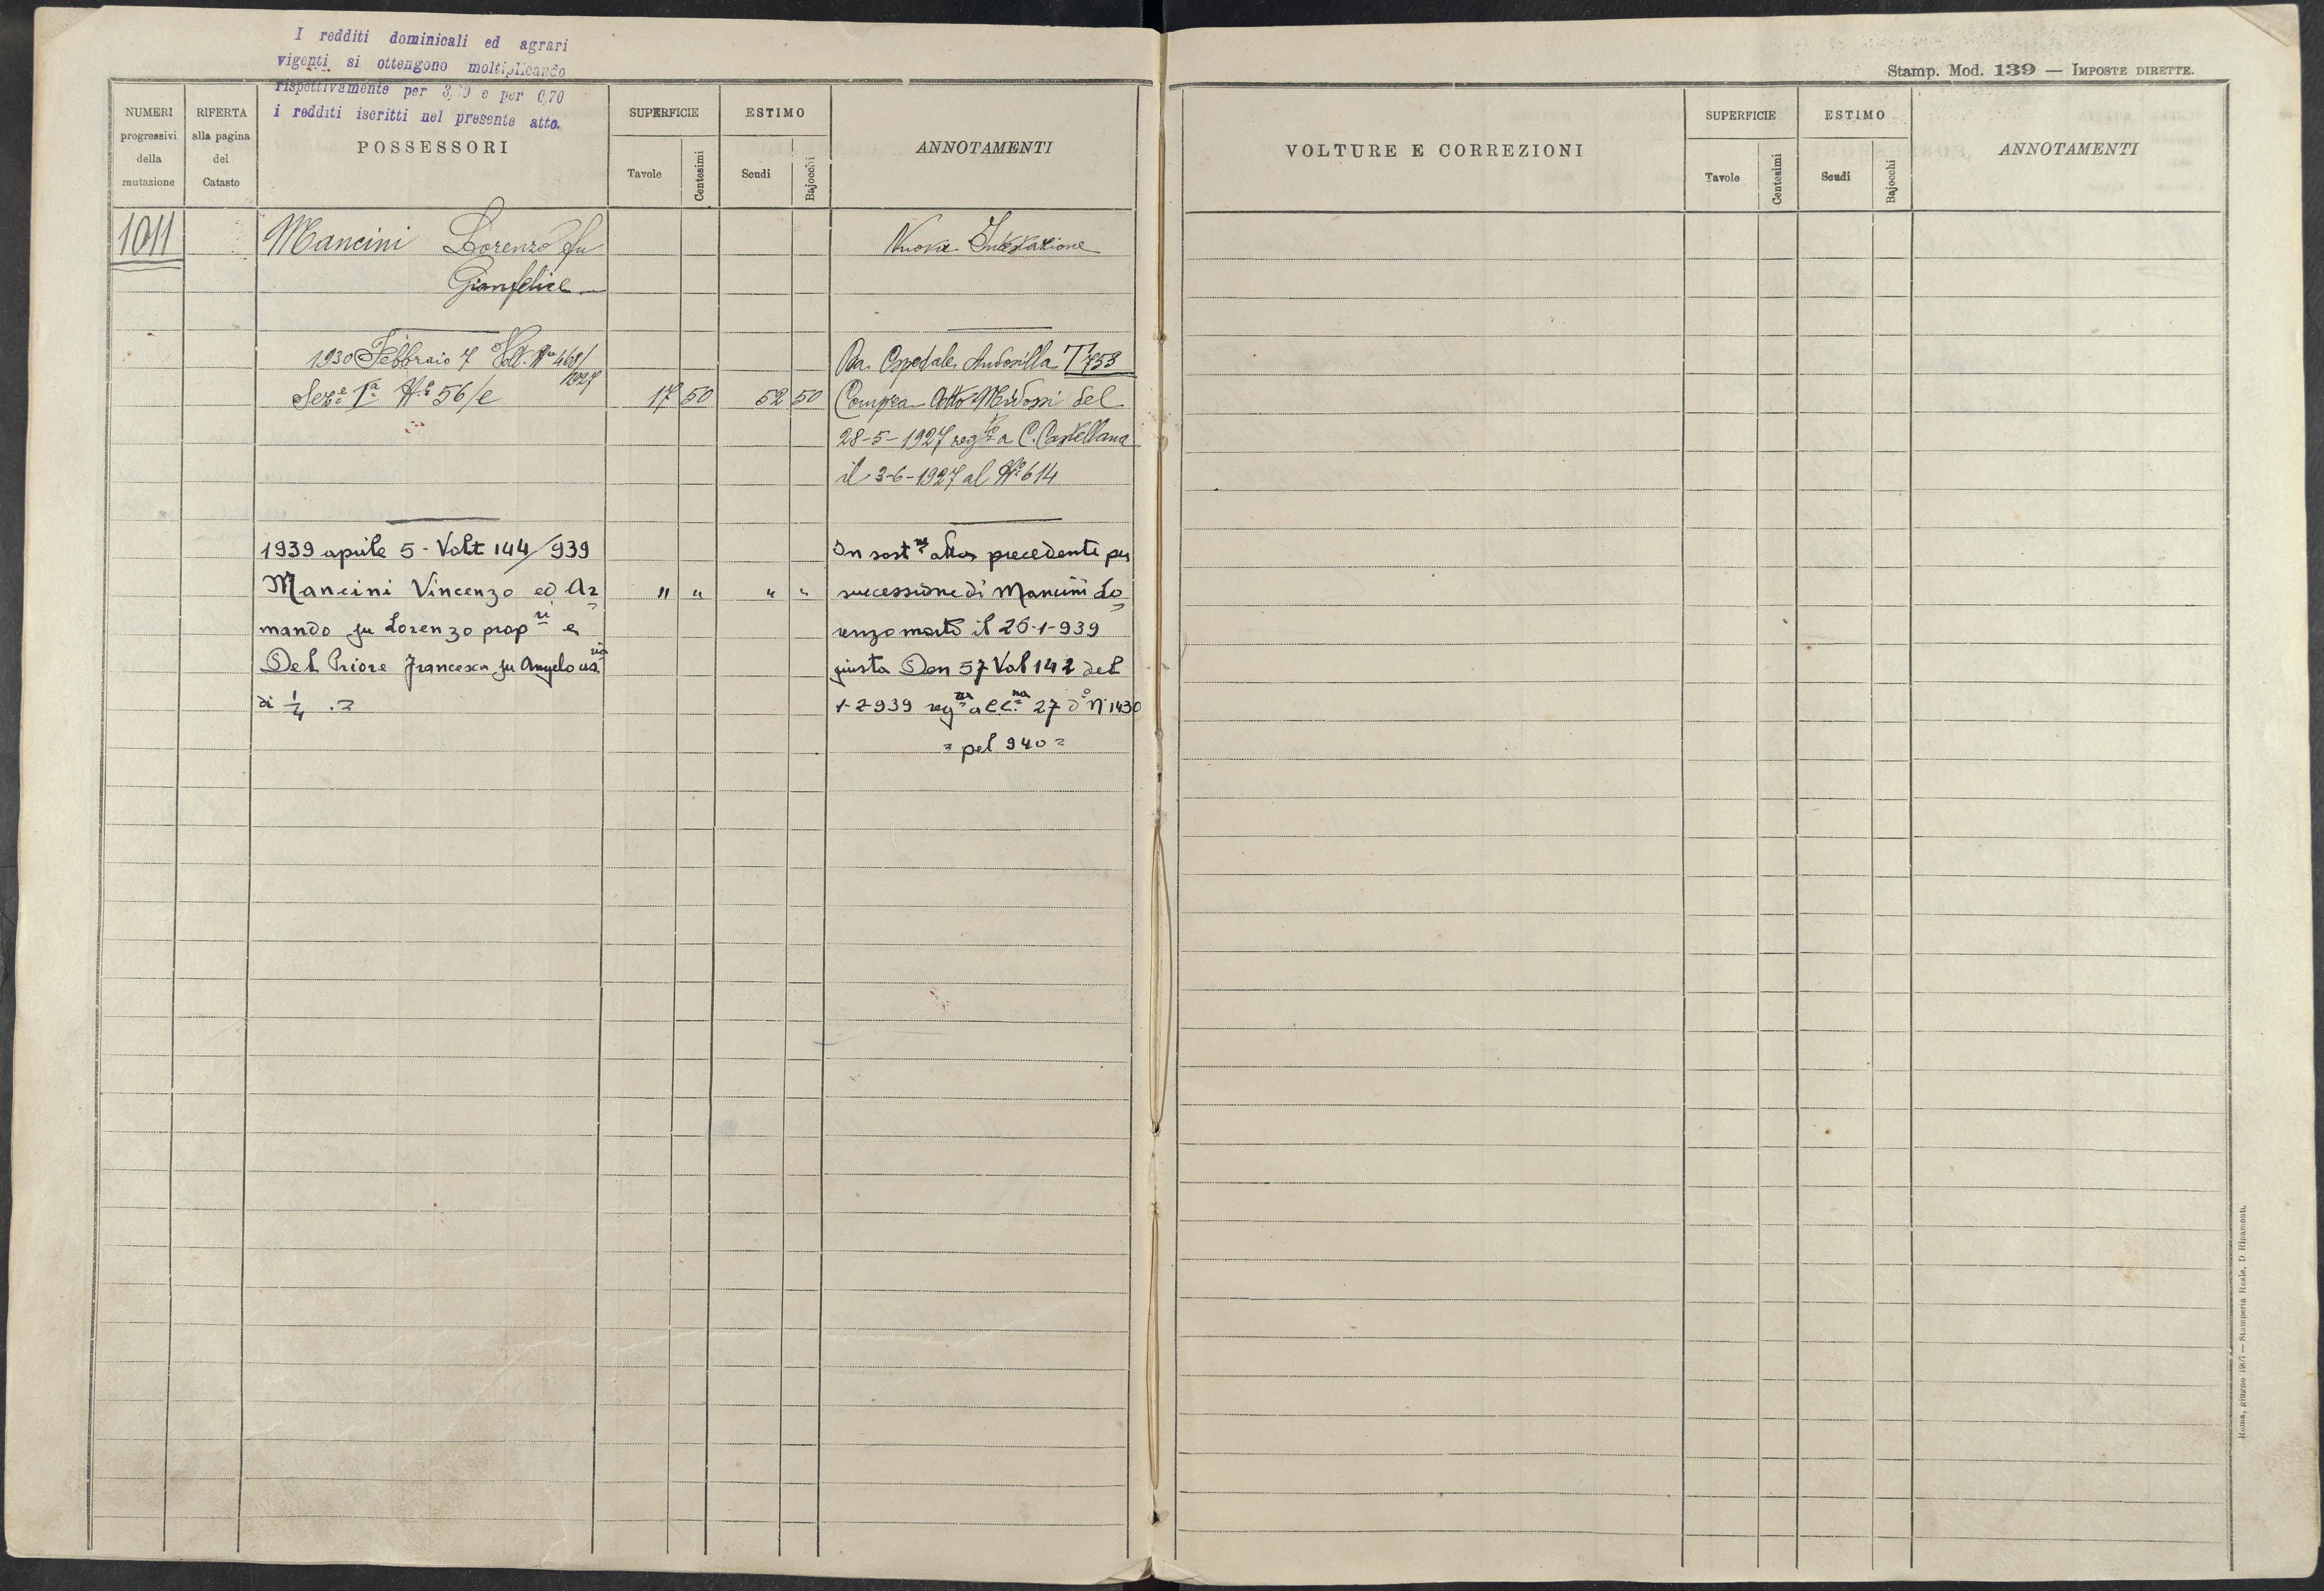 I redditi dominicali ed agrari
vigenti si ottengono moltiplicando
rispettivamente per e per 0,70
i redditi iscritti nel presente atto.
Stamp. Mod. 139 — IMPOSTE DIRETTE.
NUMERI progressivi della mutazione
RIFERTA alla pagina del Catasto
POSSESSORI
SUPERFICIE
Tavole
Centesimi
ESTIMO
Scudi
Bajocchi
ANNOTAMENTI
VOLTURE E CORREZIONI
SUPERFICIE
Tavole
Centesimi
ESTIMO
Scudi
Bajocchi
ANNOTAMENTI
1011 Mancini Lorenzo fu Nuova Intestazione
Gianfelice
1930 Febbraio 7 Volt. Nº 468/1927 Da Ospedale Andosilla T 753
Sez.e 1ª Nº 56/e 17 50 52 50 Compra Atto Midossi del
28-5-1927 regto a C. Castellana
il 3-6-1927 al Nº 614
1939 aprile 5 - Volt 144/939 In sostne alla precedente per
Mancini Vincenzo ed Ar= " " " " successione di Mancini Lo=
mando fu Lorenzo propri e renzo morto il 26-1-939
Del Priore Francesca fu Angelo usria giusta Den 57 Vol 142 del
di 1/4 .= 1-2-939 regta a C.C.na 27 do N 1430
= pel 940 =
Roma, giugno 1907 — Stamperia Reale, D. Ripamonti.